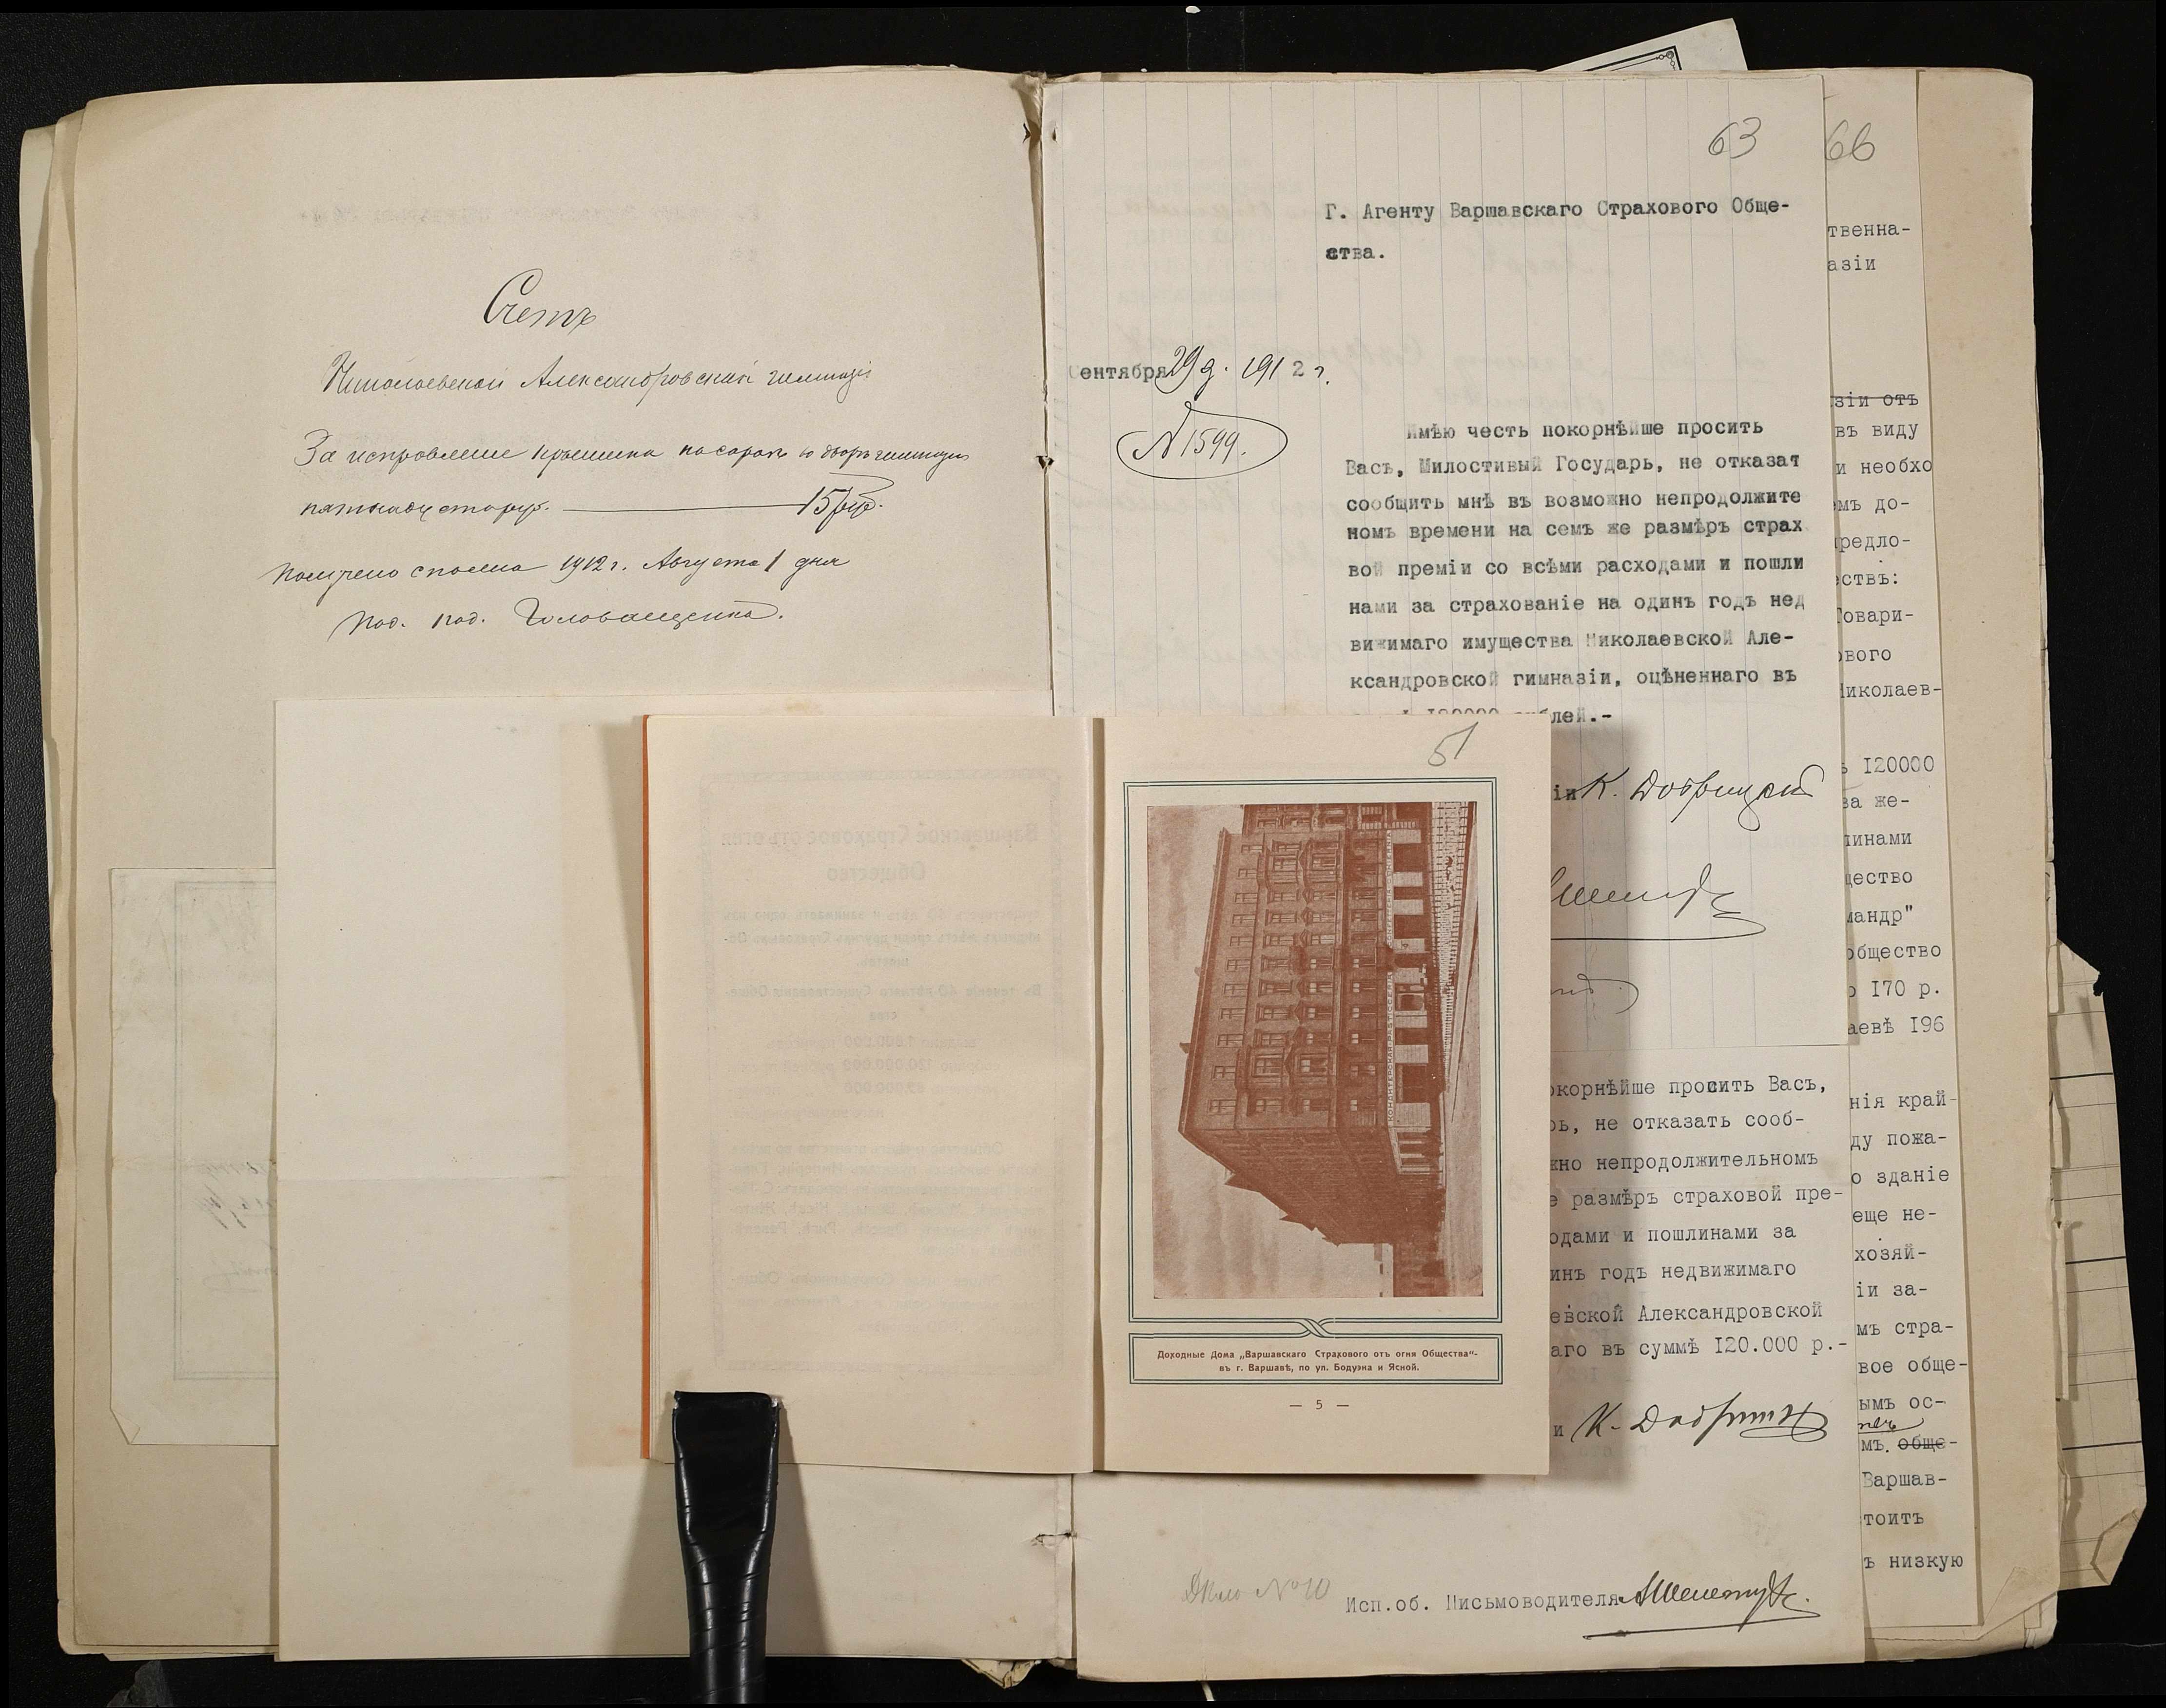 Счетъ
Николаевской Александровской гимназіи
За исправление крышина на сараях во дворе гимназіи
пятнадцать руб. 15 руб.
Получено сполна 1912 г. Августа 1 дня
под. Головащенко.
63
Г. Агенту Варшавскаго Страхового Обще-
ства.
Сентября 29 д. 1912 г.
№ 1599.
Имѣю честь покорнѣйше просить
Васъ, Милостивый Государь, не отказат
сообщить мнѣ въ возможно непродолжите
номъ времени на семъ же размѣръ страх
вой преміи со всѣми расходами и пошли
нами за страхованіе на одинъ годъ нед
вижимаго имущества Николаевской Але-
ксандровской гимназіи, оцѣненнаго въ
120000 рублей.-
іи К. Добрицкій
51
Доходные Дома „Варшавскаго Страхового отъ огня Общества"-
въ г. Варшавѣ, по ул. Бодуэна и Ясной.
— 5 —
окорнѣйше просить Васъ,
рь, не отказать сооб-
жно непродолжительномъ
е размѣръ страховой пре-
одами и пошлинами за
инъ годъ недвижимаго
евской Александровской
аго въ суммѣ 120.000 р.-
и
Дѣло № 10
Исп.об. Письмоводителя
66
твенна-
азіи
зіи отъ
въ виду
и необхо
мъ до-
редло-
ствъ:
Товари-
ового
Николаев-
ъ 120000
ва же-
линами
щество
мандр"
общество
о 170 р.
аевѣ 196
нія край-
ду пожа-
о зданіе
еще не-
хозяй-
іи за-
мъ стра-
вое обще-
ымъ ос-
мъ. обще-
Варшав-
тоитъ
ъ низкую